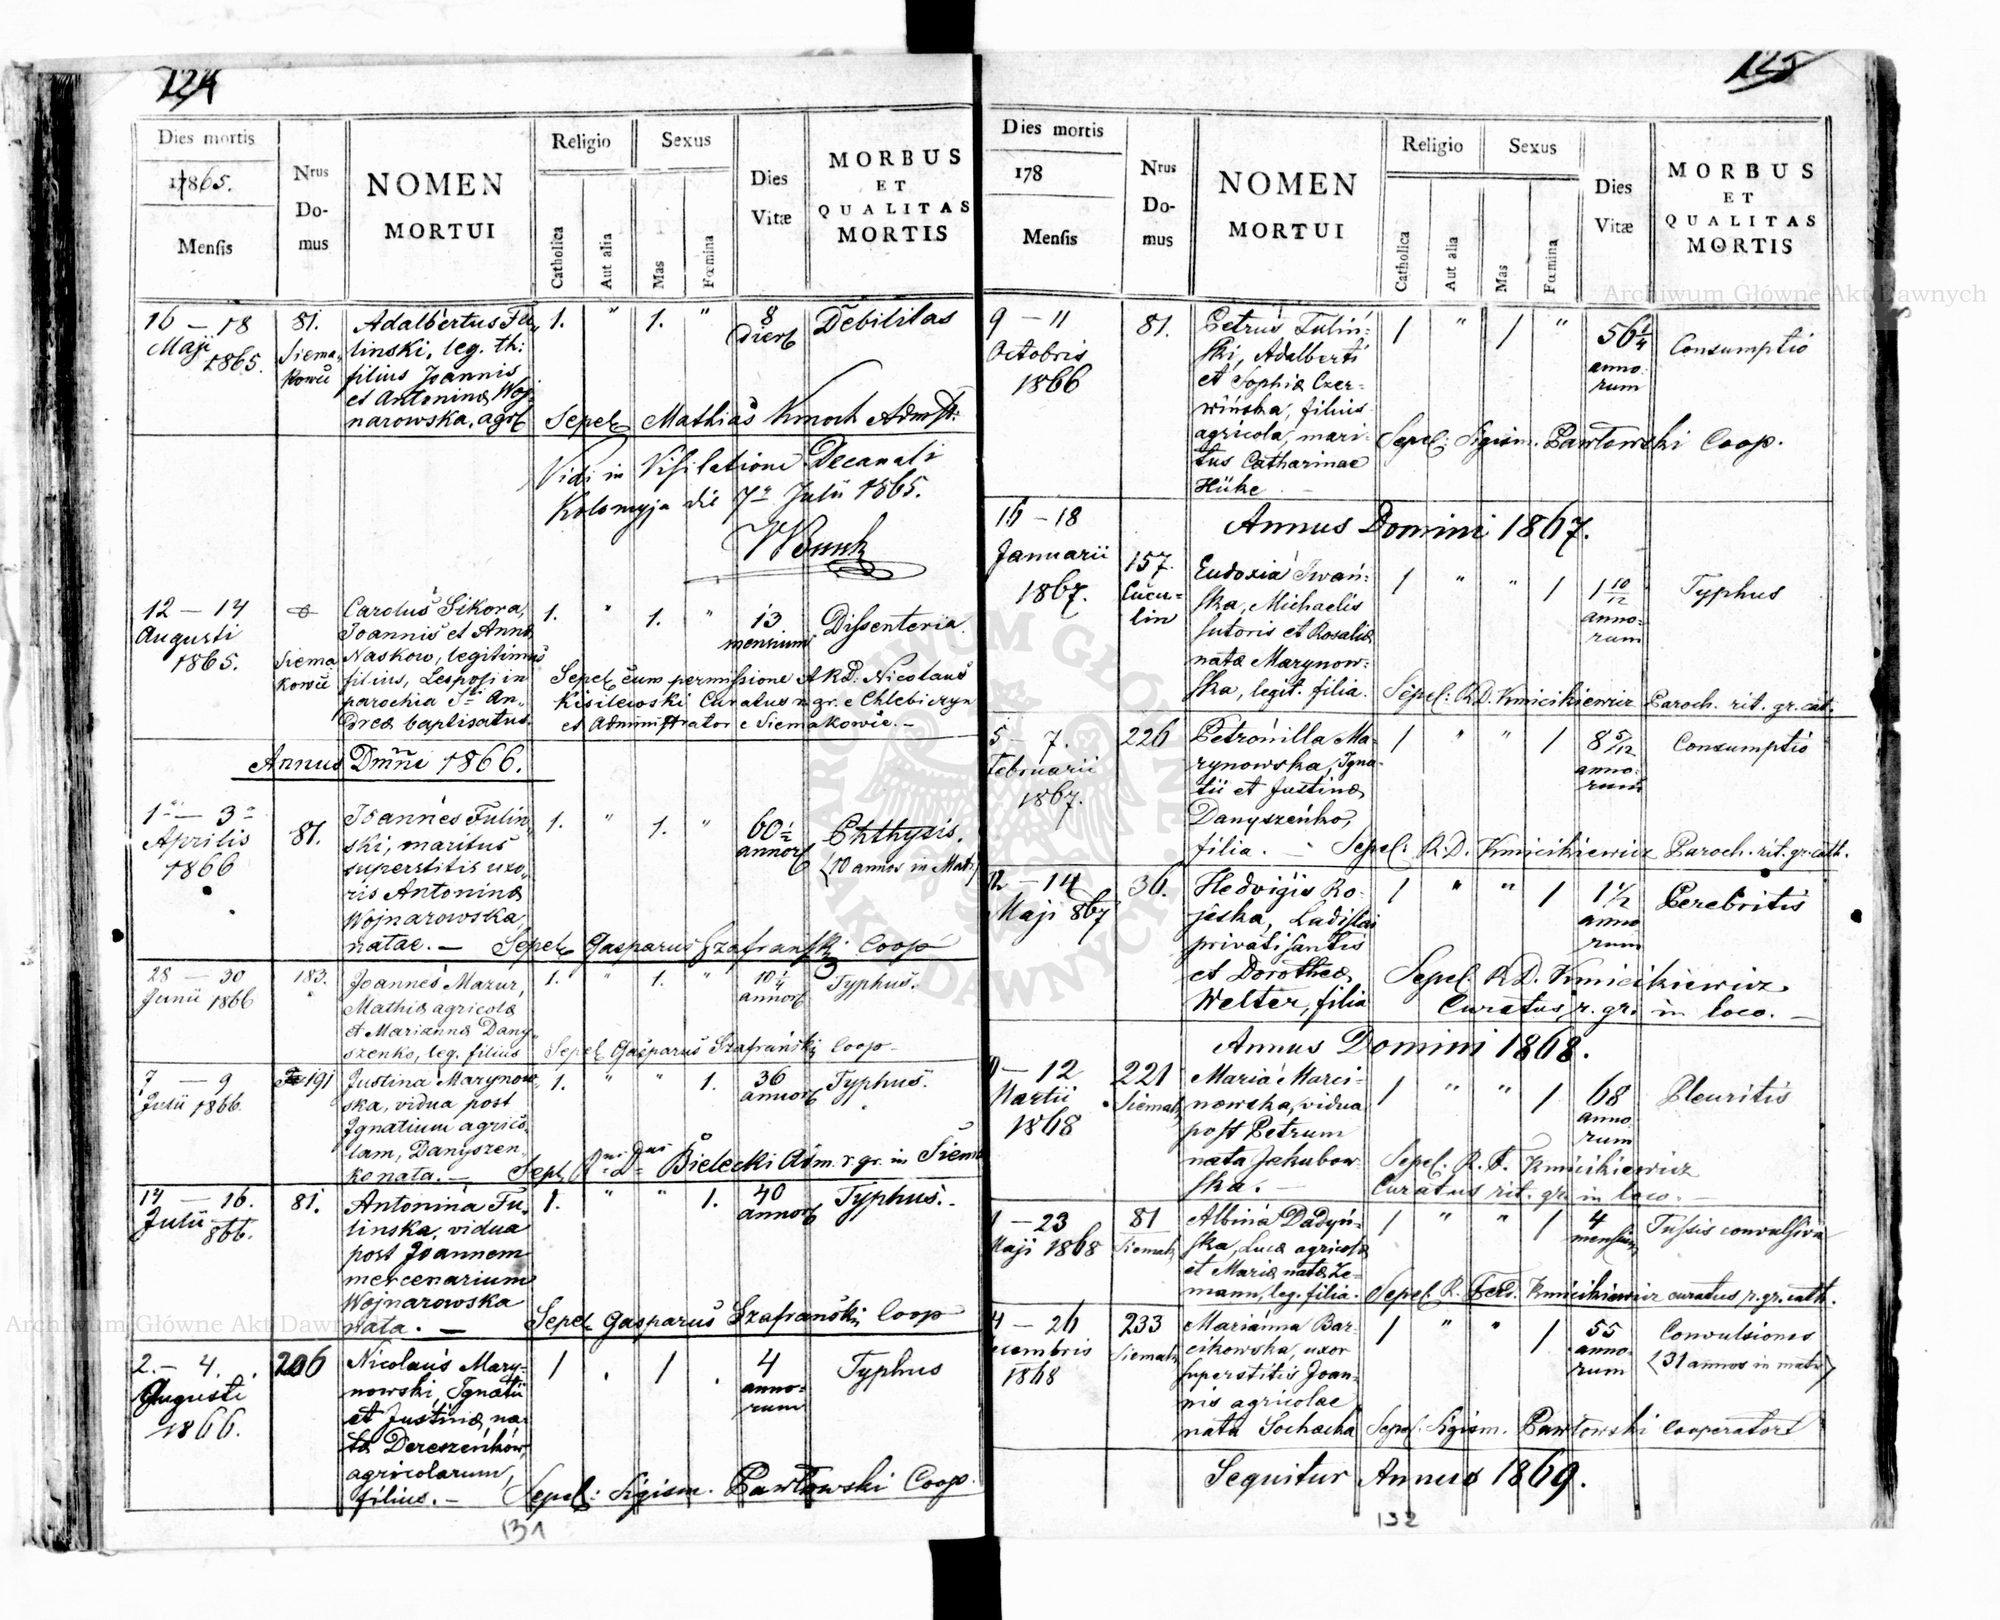 124
Dies mortis
1865.
Mensis
Nrus
Do-
mus
NOMEN
MORTUI
Religio
Catholica
Aut alia
Sexus
Mas
Fœmina
Dies
Vitæ
MORBUS
ET
QUALITAS
MORTIS
16 – 18
Maji
1865.
81.
Siema„
Kowce
Adalbertus Fu„
linski, leg. th:
filius Joannis
et Antoninæ Woj„
narowska, agr
1. " 1. "
8
Dier
Debilitas
Sepel Mathias Kmoch Admst:
Vidi in Visitatione Decanali
Kolomyja die 7a Julii 1865.
12 – 14
Augusti
1865.
Siema
Kowce
Carolus Sikora,
Joannis et Anna
Naskow, legitimus
filius, Leopoli in
parochia Sti An„
dreæ baptisatus
1. " 1. "
13
mensium
Dissenteria
Sepel cum permissione A R.D. Nicolaus
Kisilewski Curatus r. gr. e Chlebiczyn
et Administrator e Siemakowce. –
Annus Dmni 1866.
1a – 3a
Aprilis
1866
81.
Joannes Fulin„
ski, maritus
superstitis uxo„
ris Antoninæ
Wojnarowska
natae. –
1. " 1. "
60½
annor
Phthysis.
(10 annos in Matr)
Sepel Gasparus Szafranski Coop
28 – 30
Junii 1866
183.
Joannes Mazur,
Mathiæ agricolæ
et Mariannæ Dany„
szenko, leg. filius
1. " 1. "
10¼
annor
Typhus.
Sepel Gasparus Szafranski Coop –
7 – 9
Julii 1866.
191
Justina Marynow„
ska, vidua post
Ignatium agrico„
lam, Danyszen„
ko nata. –
1. " " 1.
36
annor
Typhus.
Sepel Rndus Dnus Bielecki Adm. r. gr. in Siema
14 – 16.
Julii 866.
81.
Antonina Fu„
linska, vidua
post Joannem
mercenarium
Wojnarowska
nata. –
1. " " 1.
40
annor
Typhus. –
Sepel Gasparus Szafranski Coop
2. – 4.
Augusti
1866.
206
Nicolaus Mary-
nowski, Ignatii
et Justinæ, na-
tæ Dereszeńków,
agricolarum,
filius. –
1 . 1 .
4
anno-
rum
Typhus
Sepel: Sigism. Pawłowski Coop.
131
125
Dies mortis
178
Mensis
Nrus
Do-
mus
NOMEN
MORTUI
Religio
Catholica
Aut alia
Sexus
Mas
Fœmina
Dies
Vitæ
MORBUS
ET
QUALITAS
MORTIS
9 – 11
Octobris
1866
81.
Petrus Fuliń-
ski, Adalberti
et Sophiæ Czer-
wińska, filius
agricola, mari-
tus Catharinae
Hüke
1 " 1 "
56¼
anno-
rum
Consumptio
Sepel: Sigism. Pawłowski Coop.
Annus Domini 1867.
16 – 18
Januarii
1867.
157.
Cucu-
lin
Eudoxia Iwań-
ska, Michaelis
sutoris et Rosaliæ
natæ Marynow-
ska, legit. filia.
1 " " 1
1 10/12
anno-
rum
Typhus
Sepel: R.D. Kmicikiewicz Paroch. rit. gr. cat.
5 – 7.
Februarii
1867.
226
Petronilla Ma-
rynowska, Igna-
tii et Justinæ
Danyszeńko,
filia. –
1 " " 1
8 5/12
anno-
rum
Consumptio
Sepel: R.D. Kmicikiewicz Paroch. rit. gr. cath.
12 – 14
Maji 867
36.
Hedvigis Ro-
jeska, Ladislai
privatisantis
et Dorotheæ
Welter, filia
1 " " 1
1½
anno
rum
Cerebritis
Sepel. R.D. Kmicikiewicz
Curatus r. gr. in loco. –
Annus Domini 1868.
– 12
Martii
1868
221
Siemak
Maria Marci-
nowska, vidua
post Petrum
nata Jakubow-
ska. –
1 " " 1
68
anno
rum
Pleuritis
Sepel. R. F. Kmicikiewicz
Curatus rit. gr. in loco. –
– 23
Maji 1868
81
Siemak
Albina Dadyń-
ska, Lucæ agricolæ
et Mariæ natæ Le-
mann, leg. filia.
1 " " 1
4
mensium
Tussis convulsiva
Sepel. R. Ferd. Kmicikiewicz curatus r. gr. cath.
4 – 26
1868
233
Siemak
Marianna Bar-
cikowska, uxor
superstitis Joan-
nis agricolae
nata Sochacka
1 " " 1
55
anno-
rum
Convulsiones
(31 annos in matr)
Sepel. Sigism. Pawłowski Cooperator
Sequitur Annus 1869.
132
Archiwum Główne Akt Dawnych
Archiwum Główne Akt Dawnych
ARCHIWUM GŁÓWNE AKT DAWNYCH